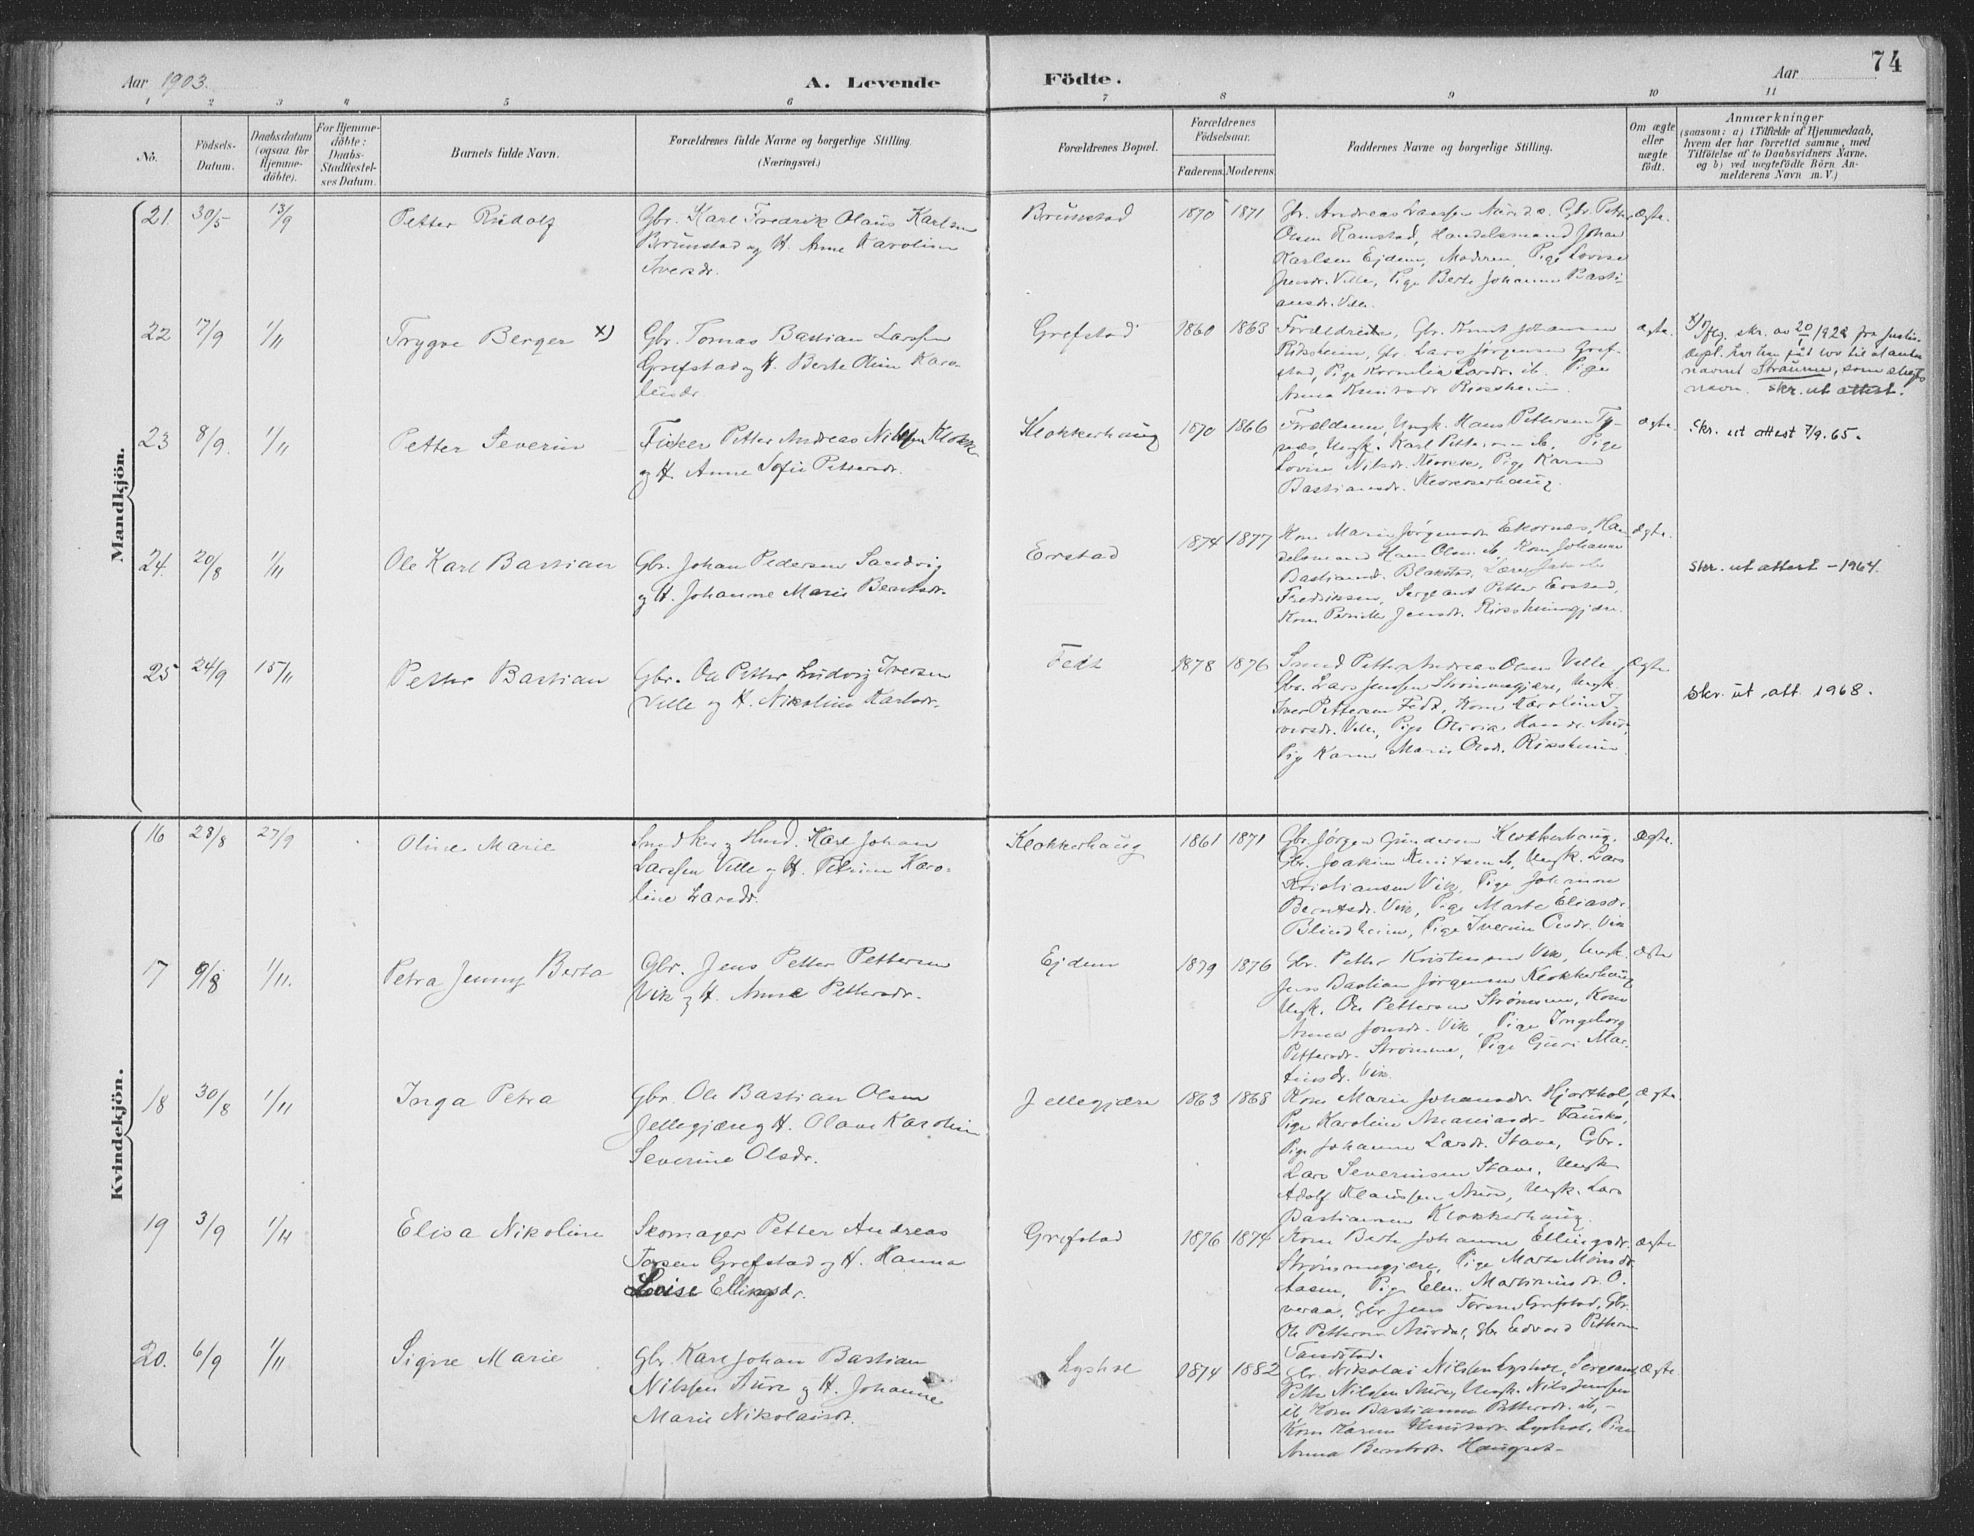 74
Aar 1903.
A. Levende Födte.
Aar
1 2 3 4 5 6 7 8 9 10 11
No.
Födsels-Datum.
Daabsdatum (ogsaa for Hjemme-döbte).
For Hjemme-döbte: Daabs-Stadfæstelses Datum.
Barnets fulde Navn.
Forældrenes fulde Navne og borgerlige Stilling. (Næringsvei.)
Forældrenes Bopæl.
Forældrenes Födselsaar.
Faderens. Moderens.
Faddernes Navne og borgerlige Stilling.
Om ægte eller uægte födt.
Anmærkninger
(saasom: a) i Tilfælde af Hjemmedaab,
hvem der har forrettet samme, med
Tilföielse af to Daabsvidners Navne,
og b) ved uægtefödte Börn An-
melderens Navn m. V.)
Mandkjön.
21 30/5 13/9 Petter Rudolf
Gbr. Karl Fredrik Olaus Karlsen
Brunstad og H. Anne Karoline
Iversdr.
Brunstad 1870 1871
Gbr. Andreas Larssen Gbr. Petter
Olsen Ramstad, Handelsmand Johan
Karlsen Ejdem, Moderen, Pige Lovise
Jensdr. Velle, Pige Berte Johanne Basti-
ansdr. Velle.
ægte.
22 17/9 1/11 Trygve Berger x)
Gbr. Tomas Bastian Larssen
Grefstad og H. Berte Oline Karo-
lusdr.
Grefstad 1860 1863
Forældrene, Gbr. Knut Johansen
Riksheim, Gbr. Lars Jørgensen Gref-
stad, Pige Kornelia Larsdr. ib. Pige
Anna Knutsdr. Riksheim.
ægte.
x) Iflg. skr. av 20/1 1922 fra Justis-
depl. har han fåt lov til at anta
navnet Straume, som slegts
navn. skr. ut attest.
23 8/9. 1/11 Petter Severin
Fisker Petter Andreas Nilssen Klokk.
og H. Anne Sofie Pettersdr.
Klokkerhaug 1870 1866
Forældrene, Ungk. Hans Pettersen Ty-
nes, Ungk. Karl Pettersen ib. Pige
Lovise Nilsdr. Pige Karen
Bastiansdr. Klokkerhaug.
ægte.
Skr. ut attest 7/9. 65.
24. 20/8 1/11 Ole Karl Bastian
Gbr. Johan Pedersen Sandvig
og H. Johanne Marie Berntsdr.
Erstad 1874 1877
Kone Marie Jørgensdr. Ekornes, Han-
delsmand Hans Olsen ib. Kone Johanne
Bastiansdr. Blakstad, Lærer
Fredriksen, Sergeant Petter Erstad,
Kone Pernille Jensdr. Riksheimgjære.
ægte.
skr. ut attest - 1964.
25 24/9 15/11 Petter Bastian
Gbr. Ole Petter Ludvig Iversen
Velle og H. Nikoline Karlsdr.
Fedt 1878 1876
Smed Petter Andreas Olsen Velle,
Gbr. Lars Jenssen Strømmegjære, Ungk.
Iver Pettersen Fedt, Kone Karoline I-
versdr. Velle, Pige Olivia Hansdr. Aure,
Pige Karen Marie Olsdr. Riksheim.
ægte
skr. ut att. 1968.
Kvindekjön.
16 28/8 27/9 Oline Marie
Snedker og Husmd. Karl Johan
Larssen Velle og H. Petrine Karo-
line Larsdr.
Klokkerhaug 1861 1871
Gbr. Jørgen Gundersen Klokkerhaug.
Gbr. Joakim Knutsen ib, Ungk. Lars
Kristiansen Vik, Pige Johanne
Berntsdr. Vik, Pige Marte Eliasdr.
Blindheim, Pige Iverine Olsdr. Vik
ægte.
17 9/8 1/11. Petra Jenny Berta
Gbr. Jens Petter Pettersen
Vik og H. Anne Pettersdr.
Ejdem 1879 1876
Gbr. Petter Kristensen Vik, Ungk.
Jens Bastian Jørgensen Klokkerhaug
Ungk. Ole Pettersen Strømme, Kone
Anna Jonsdr. Vik, Pige Ingeborg
Pettersdr. Strømme, Pige Guri Mar-
tinsdr. Vik.
ægte
18 30/8 1/11 Inga Petra
Gbr. Ole Bastian Olsen
Jellegjære og H. Olave Karoline
Severine Olsdr.
Jellegjære 1863 1868
Kone Marie Johansdr. Hjorthol,
Pige Karoline Ananiasdr. Fauske,
Pige Johanne Larsdr. Stave, Gbr.
Lars Severinsen Stave, Ungk.
Adolf Klaussen Aure, Ungk. Lars
Bastiansen Klokkerhaug.
ægte.
19 3/9 1/11 Elisa Nikoline
Skomager Petter Andreas
Torsen Grefstad og H. Hanna
Lovise Ellingsdr.
Grefstad 1876 1874
Kone Berte Johanne Ellingsdr.
Strømmegjære, Pige Marte Monsdr.
Aasen, Pige Elen Martinusdr. O-
veraa, Gbr. Jens Torsen Grefstad, Gbr.
Ole Pettersen Aurdal, Gbr. Edvard Pettersen
Tandstad.
ægte
20. 6/9 1/11 Signe Marie
Gbr. Karl Johan Bastian
Nilssen Aure og H. Johanne
Marie Nikolaisdr.
Lyshol 1874 1882
Gbr. Nikolai Nilssen Lyshol, Sergeant
Petter Nilssen Aure, Ungk. Nils Jenssen
ib, Kone Bastianne Pettersdr. ib,
Kone Karen Knutsdr. Lyshol, Pige
Anna Berntsdr. Haugset
ægte.